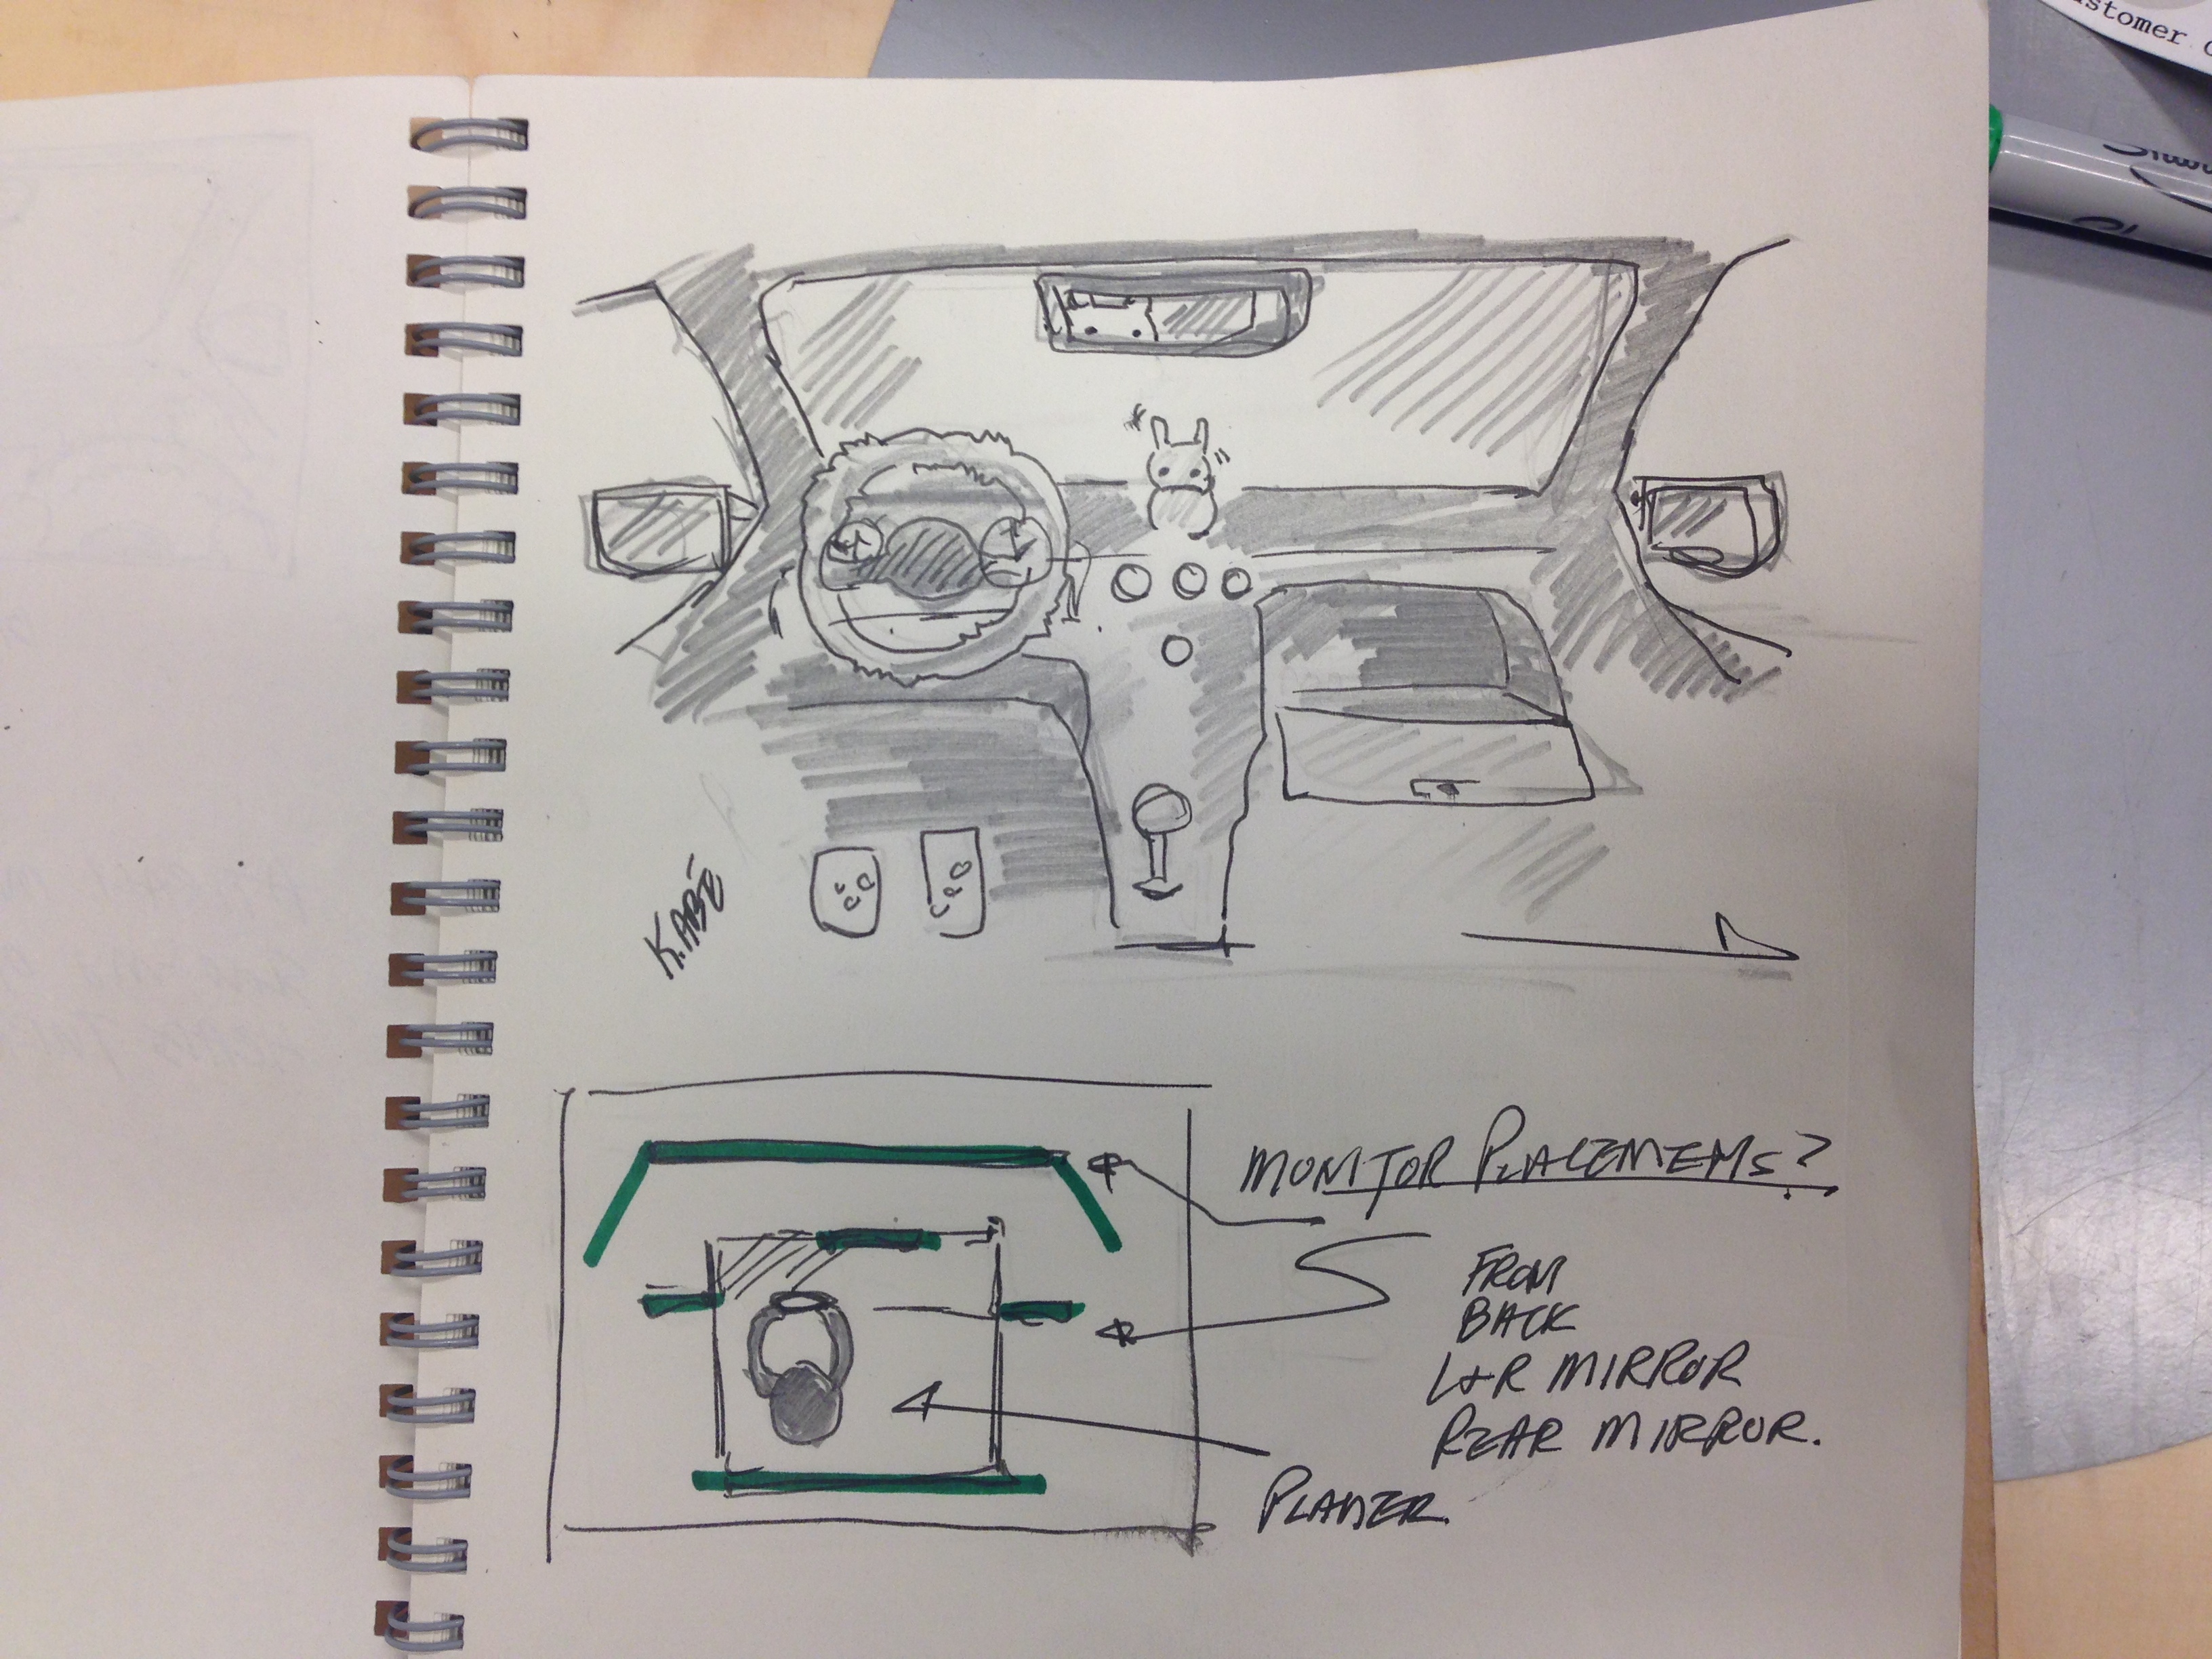 K. ABE
MONITOR PLACEMENTS?
FRONT
BACK
L+R MIRROR
REAR MIRROR.
PLAYER.
stomer